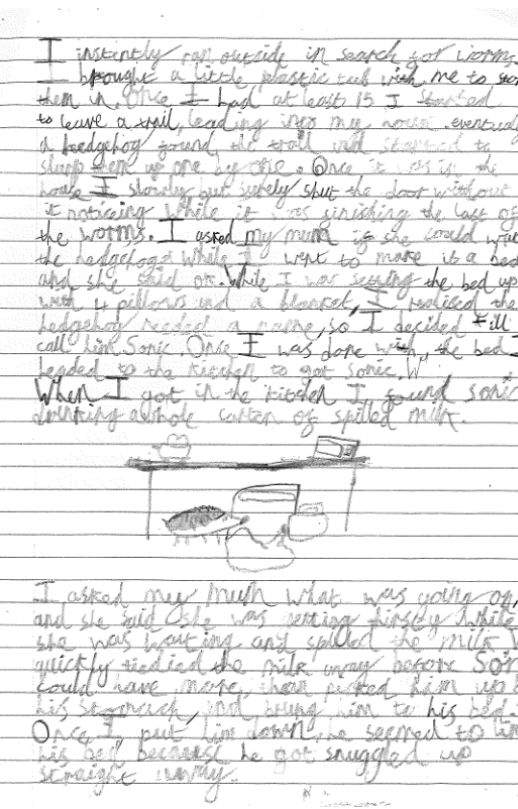 I instintly ran outside in search for worms.
I brought a little plastic tub with me to
them in. Once I had at least 15 I started
to leave a trail, leading into my house. eventualy
a hedgehog found the trail and started to
slurp them up one by one. Once it was in the
house I slowly but surely shut the door without
it noticing while it was finishing the last of
the worms. I asked my mum if she could
the hedgehog while I went to make it a bed
and she said ok. While I was setting the bed up
with 4 pillows and a blanket, I realised the
hedgehog needed a name, so I decided
call him Sonic. Once I was done with the bed I
headed to the kitchen to get Sonic. W
When I got in the kitchen I found sonic
drinking a whole carten of spilled milk.
I asked my mum what was going on,
and she said she was getting thirsty while
she was waiting and spilled the milk.
quickly tiedied the milk away before
could have more, then picked him up
his stomach, and bring him to his bed.
Once I put him down, he seemed to
his bed because he got snuggled up
straight away.